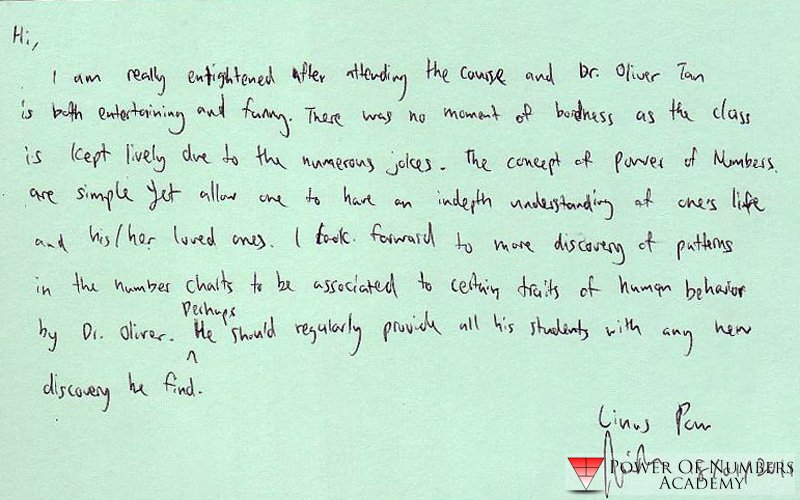 Hi,
I am really entightened after attending the course and Dr. Oliver Tan
is both entertaining and funny. There was no moment of bordness as the class
is kept lively due to the numerous jokes. The concept of Power of Numbers.
are simple yet allow one to have an indepth understanding of one's life
and his/her loved ones. I look forward to more discovery of patterns
in the number charts to be associated to certain traits of human behavior
Perhaps
by Dr. Oliver. He should regularly provide all his students with any new
discovery he find.
Linus
POWER OF NUMBERS
ACADEMY